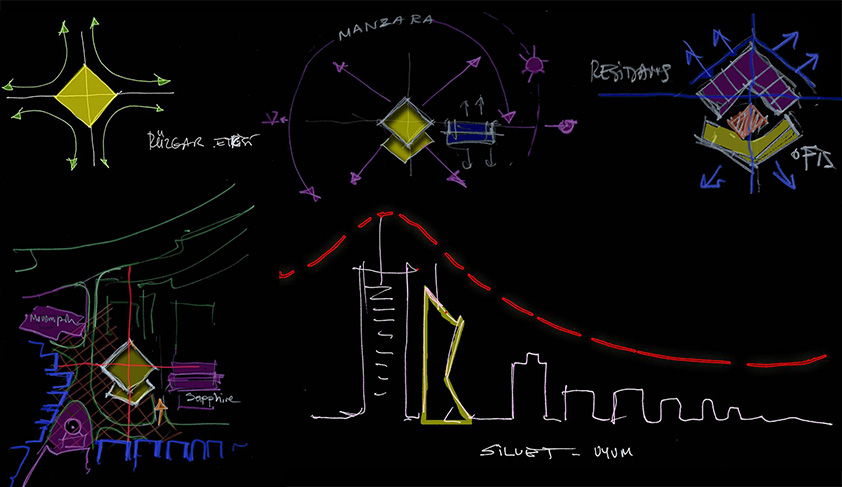 RÜZGAR ETKİSİ
MANZARA
REZİDANS
OFİS
Sapphire
SİLUET - UYUM